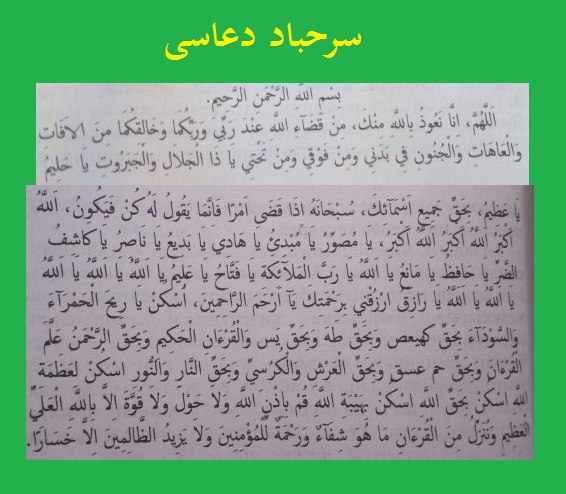 سرحباد دعاسی
بِسْمِ اللّٰهِ الرَّحْمٰنِ الرَّحِيمِ.
اَللّٰهُمَّ، اِنَّا نَعُوذُ بِاللّٰهِ مِنْكَ، مِنْ قَضَآءِ اللّٰهِ عِنْدَ رَبِّي وَرَبِّكُمَا وَخَالِقِكُمَا مِنَ الْاٰفَاتِ
وَالْعَاهَاتِ وَالْجُنُونِ فِي بَدَنِي وَمِنْ فَوْقِي وَمِنْ تَحْتِي يَا ذَا الْجَلَالِ وَالْجَبَرُوتِ يَا حَلِيمُ
يَا عَظِيمُ، بِحَقِّ جَمِيعِ اَسْمَائِكَ، سُبْحَانَهُ اِذَا قَضٰى اَمْرًا فَاِنَّمَا يَقُولُ لَهُ كُنْ فَيَكُونُ، اَللّٰهُ
اَكْبَرُ اَللّٰهُ اَكْبَرُ اَللّٰهُ اَكْبَرُ، يَا مُصَوِّرُ يَا مُبْدِئُ يَا هَادِي يَا بَدِيعُ يَا نَاصِرُ يَا كَاشِفُ
الضُّرِّ يَا حَافِظُ يَا مَانِعُ يَا اَللّٰهُ يَا رَبَّ الْمَلَآئِكَةِ يَا فَتَّاحُ يَا عَلِيمُ يَا اَللّٰهُ يَا اَللّٰهُ يَا اَللّٰهُ
يَا اَللّٰهُ يَا اَللّٰهُ يَا رَازِقُ اُرْزُقْنِي بِرَحْمَتِكَ يَآ اَرْحَمَ الرَّاحِمِينَ، اُسْكُنْ يَا رِيحَ الْحَمْرَآءِ
وَالسَّوْدَآءِ بِحَقِّ كهيعص وَبِحَقِّ طه وَبِحَقِّ يس وَالْقُرْءَانِ الْحَكِيمِ وَبِحَقِّ الرَّحْمٰنُ عَلَّمَ
الْقُرْءَانَ وَبِحَقِّ حم عسق وَبِحَقِّ الْعَرْشِ وَالْكُرْسِيِّ وَبِحَقِّ النَّارِ وَالنُّورِ اُسْكُنْ لِعَظَمَةِ
اللّٰهِ اُسْكُنْ بِحَقِّ اللّٰهِ اُسْكُنْ بِهَيْبَةِ اللّٰهِ قُمْ بِاِذْنِ اللّٰهِ وَلَا حَوْلَ وَلَا قُوَّةَ اِلَّا بِاللّٰهِ الْعَلِيِّ
الْعَظِيمِ وَنُنَزِّلُ مِنَ الْقُرْءَانِ مَا هُوَ شِفَآءٌ وَرَحْمَةٌ لِلْمُؤْمِنِينَ وَلَا يَزِيدُ الظَّالِمِينَ اِلَّا خَسَارًا.